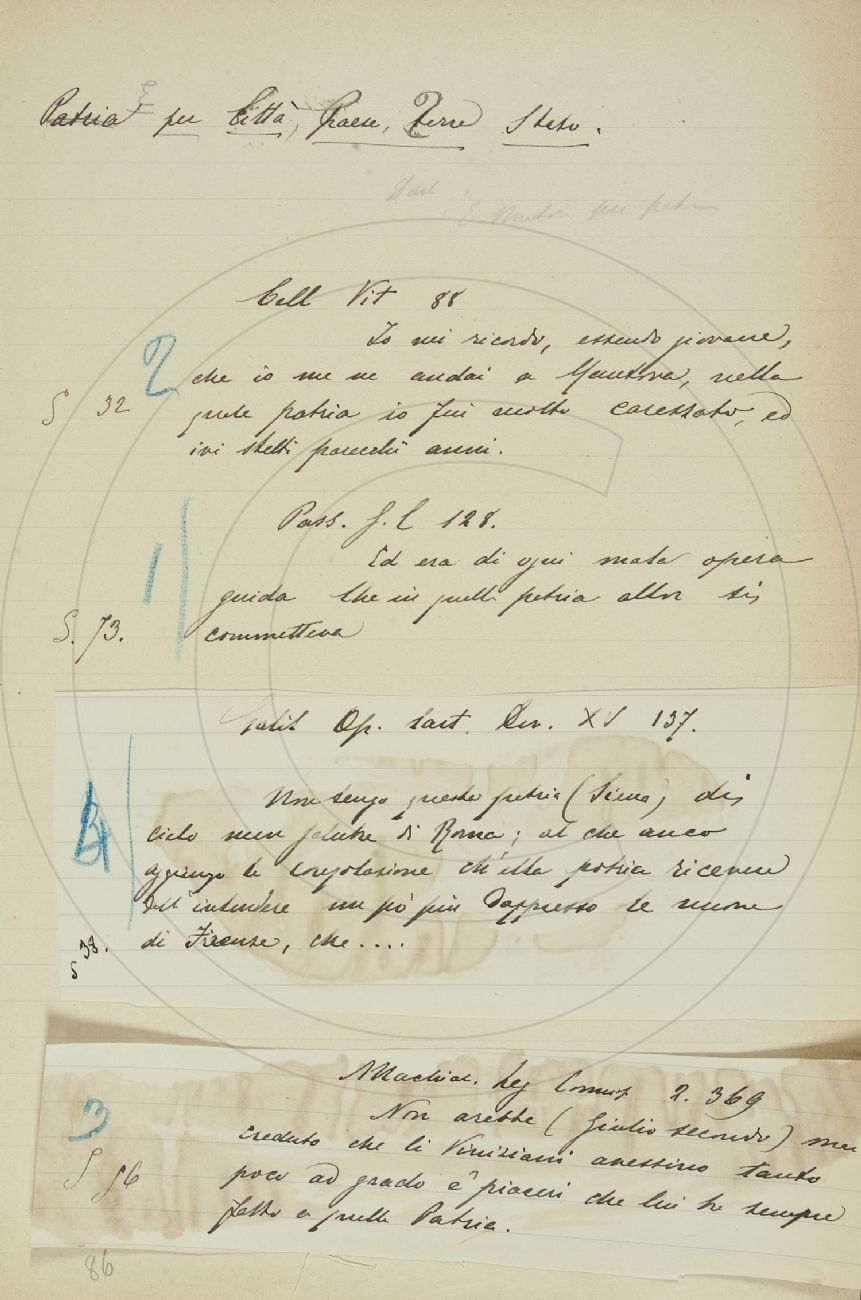 Patria per Città, Paese, Terre Stato.
Cell Vit 88
Io mi ricordo, essendo giovane,
2
che io me ne andai a Mantova, nella
§ 32
quale patria io fui molto carezzato, ed
ivi stetti parecchi anni.
Pass. f. l 128.
1
Ed era di ogni mala opera
guida che in quella patria allor si
§. 73.
commetteva
Galil Op. lett. Ven. XV 137.
Non tengo questa patria (Siena) di
4
cielo men salubre di Roma; al che anco
aggiungo la consolazione ch'ella potria ricevere
dell'intendere un po' più dappresso le nuove
di Firenze, che....
§ 38.
Machiav. Leg Comm 2. 369
3
Non arebbe (Giulio secondo) mai
creduto che li Viniziani avessino tanto
poco ad grado e' piaceri che lui ha sempre
§ 86
fatto a quella Patria.
86